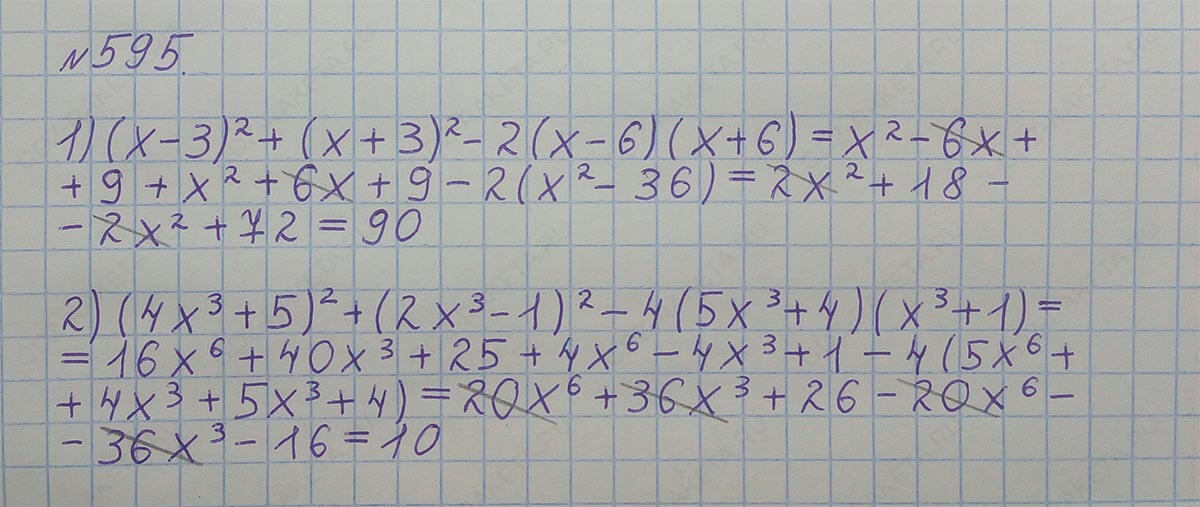 №595.
1) (x-3)² + (x+3)² - 2(x-6)(x+6) = x² - 6x +
+ 9 + x² + 6x + 9 - 2(x² - 36) = 2x² + 18 -
- 2x² + 72 = 90
2) (4x³+5)² + (2x³-1)² - 4(5x³+4)(x³+1) =
= 16x⁶ + 40x³ + 25 + 4x⁶ - 4x³ + 1 - 4(5x⁶ +
+ 4x³ + 5x³ + 4) = 20x⁶ + 36x³ + 26 - 20x⁶ -
- 36x³ - 16 = 10